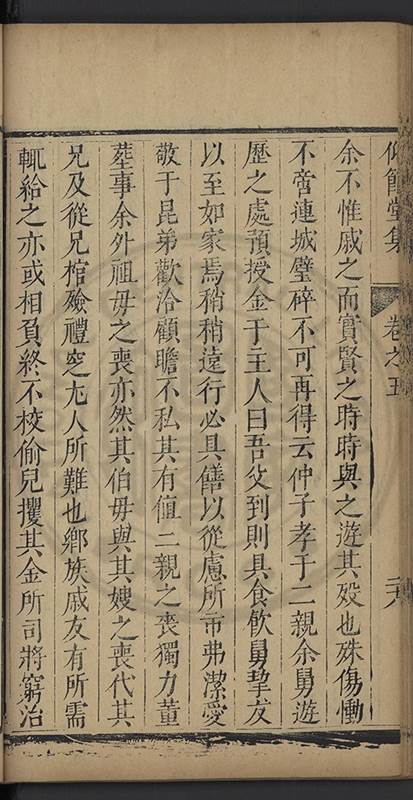 仰節堂集 卷之五 二六
余不惟戚之而實賢之時時與之遊其歿也殊傷慟
不啻連城璧碎不可再得云仲子孝于二親余舅遊
歷之處預授金于主人曰吾父到則具食飲舅挈友
以至如家焉稍稍遠行必具饍以從慮所市弗潔愛
敬于昆弟歡洽顧瞻不私其有値二親之喪獨力董
塟事余外祖母之喪亦然其伯母與其嫂之喪代其
兄及從兄棺殮禮窆尤人所難也鄉族戚友有所需
輒給之亦或相負終不校偷兒攫其金所司將窮治